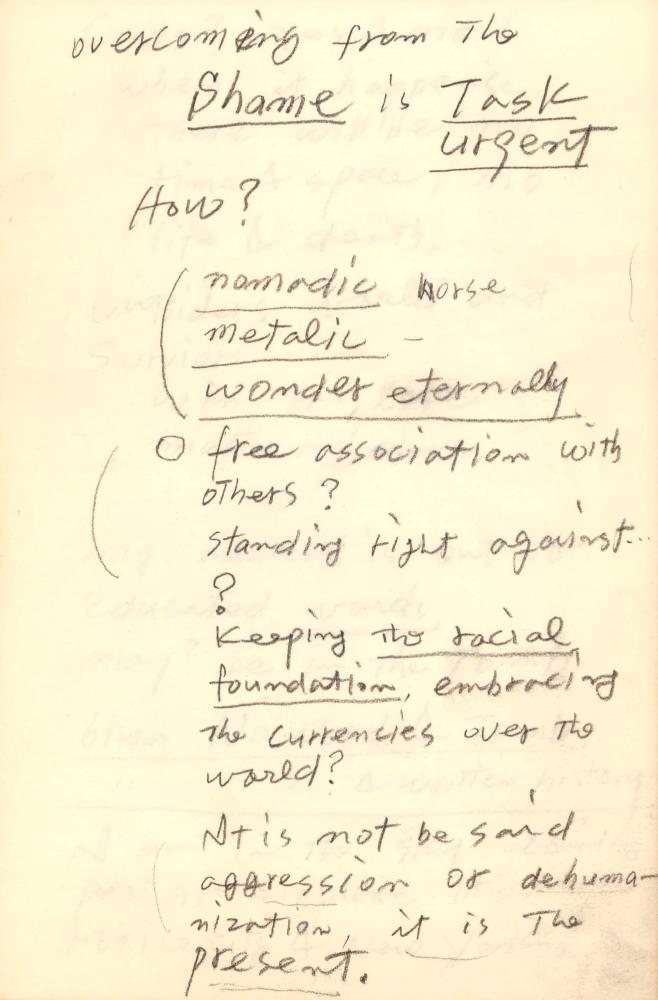 overcoming from The
Shame is Task
urgent
How?
nomadic horse
metalic –
wonder eternally
○ free association with
others ?
standing right against...
?
Keeping The racial
foundation, embracing
The Currencies over The
world?
It is not be said
aggression or dehuma-
nization, it is The
present.